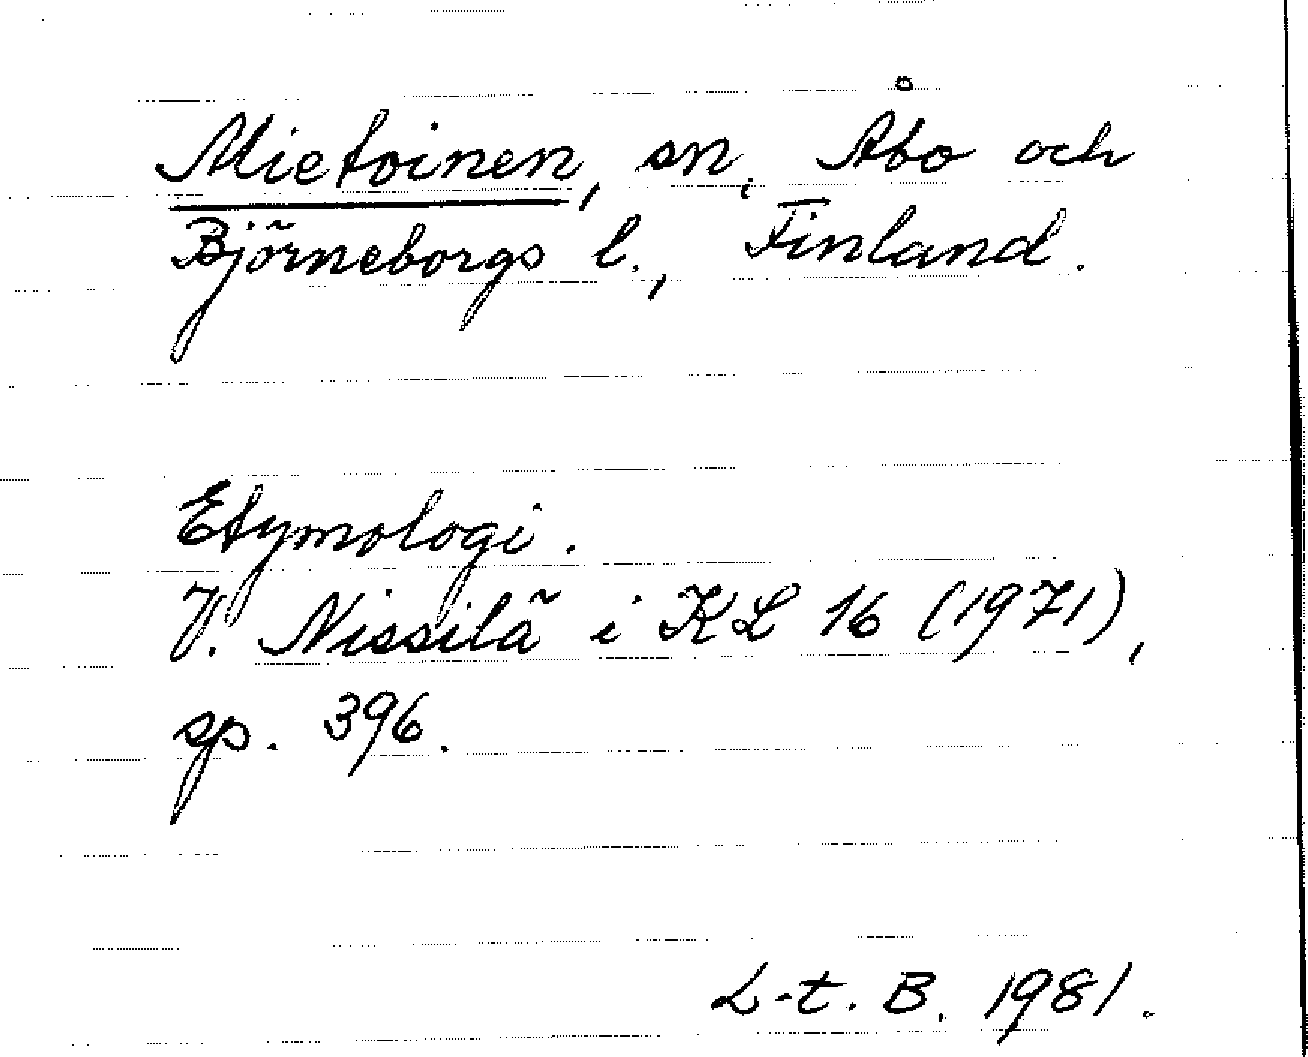 Mietoinen, sn, Åbo och
Björneborgs l., Finland.
Etymologi.
V. Nissilä i KL 16 (1971),
sp. 396.
L-t. B. 1981.